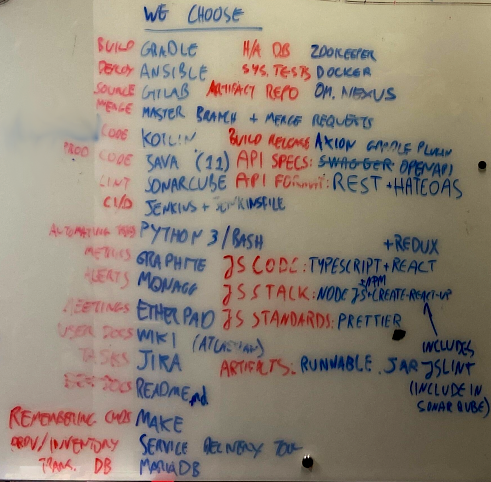 WE CHOOSE
BUILD GRADLE H/A DB ZOOKEEPER
DEPLOY ANSIBLE SYS. TESTS DOCKER
SOURCE GITLAB ARTIFACT REPO OM. NEXUS
MERGE MASTER BRANCH + MERGE REQUESTS
CODE KOTLIN BUILD RELEASE AXION GRADLE PLUGIN
PROD CODE JAVA (11) API SPECS: SWAGGER OPENAPI
LINT SONARCUBE API FORMAT: REST + HATEOAS
CI/D JENKINS + JENKINSFILE
AUTOMATING PYTHON 3/BASH +REDUX
METRICS GRAPHITE JS CODE: TYPESCRIPT + REACT
ALERTS +NPM
JS STALK: NODE JS+CREATE-REACT-UP
MEETINGS ETHERPAD JS STANDARDS: PRETTIER
USER DOCS WIKI (ATLASSIAN) INCLUDES
TASKS JIRA ARTIFACTS: RUNNABLE .JAR JSLINT
DOCS README.md (INCLUDE IN
SONARQUBE)
REMEMBERING CMDS MAKE
PROV/INVENTORY SERVICE DELIVERY TOOL
TRANS. DB MARIADB